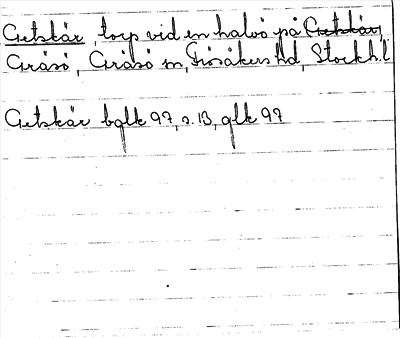 Getskär, torp vid en halvö på Getskär,
Gräsö, Gräsö sn, Frösåkers hd, Stockh.l
Getskär bglk 97, s. 13, glk 97